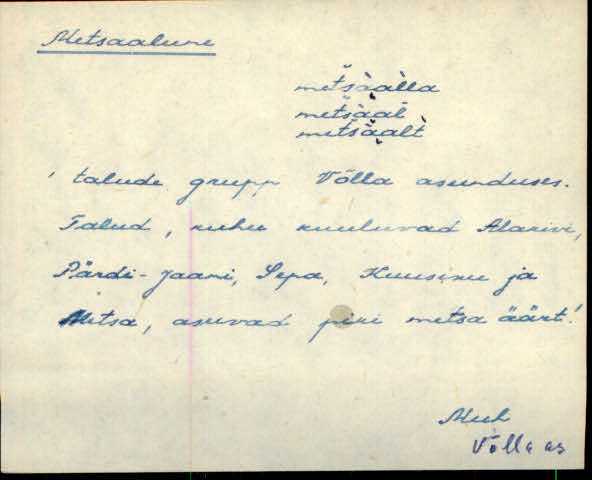 Metsaalune
metsàalla
metsàal
metsàalt
' talude grupp Võlla asunduses.
Talud, kuhu kuuluvad Alarivi,
Pärdi-Jaani, Sepa, Kuusiku ja
Metsa, asuvad piki metsa äärt!
Muh
Võlla as